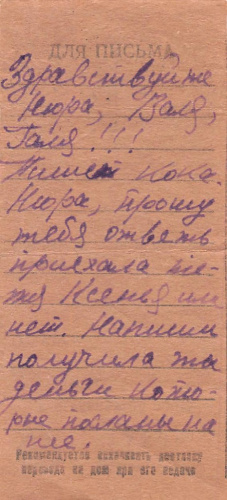 ДЛЯ ПИСЬМА
Здравствуйте
Нюра, Валя,
Галя!!!
Пишет Кока.
Нюра, прошу
тебя ответь
приехала те-
тя Ксенья или
нет. Напиши
получила ты
деньги кото-
рые посланы на
нее.
Рекомендуется оплачивать доставку
перевода на дом при его подаче